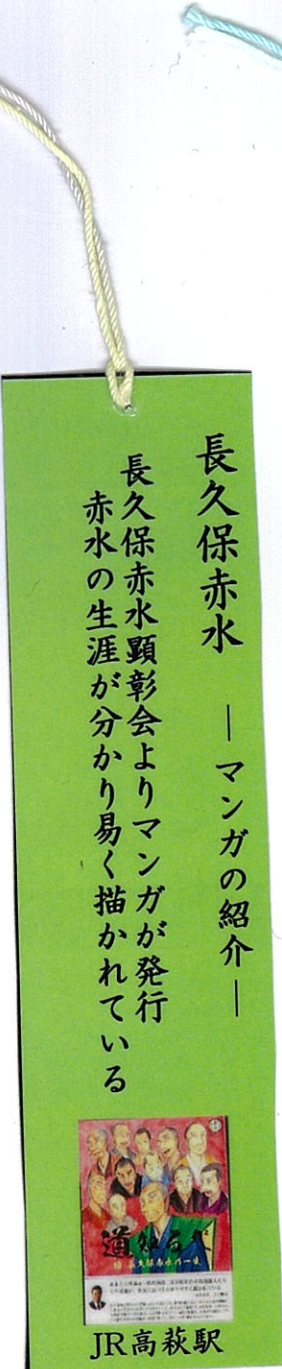 長久保赤水 ―マンガの紹介―
長久保赤水顕彰会よりマンガが発行
赤水の生涯が分かり易く描かれている
道知るべ
JR高萩駅